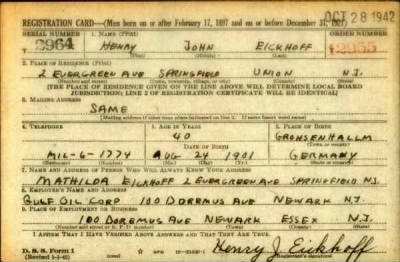 OCT 28 1942
REGISTRATION CARD—(Men born on or after February 17, 1897 and on or before December 31, 1921)
SERIAL NUMBER 1. NAME (Print) ORDER NUMBER
T 2964 HENRY JOHN EICKHOFF 12955
2. PLACE OF RESIDENCE (Print)
2 EVERGREEN AVE SPRINGFIELD UNION N.J.
(Number and street) (Town, township, village, or city) (County) (State)
[THE PLACE OF RESIDENCE GIVEN ON THE LINE ABOVE WILL DETERMINE LOCAL BOARD
JURISDICTION; LINE 2 OF REGISTRATION CERTIFICATE WILL BE IDENTICAL]
3. MAILING ADDRESS
SAME
[Mailing address if other than place indicated on line 2. If same insert word same]
4. TELEPHONE 5. AGE IN YEARS 6. PLACE OF BIRTH
40 GROHSENHALLM
DATE OF BIRTH
MIL-6-1774 AUG 24 1901 GERMANY
7. NAME AND ADDRESS OF PERSON WHO WILL ALWAYS KNOW YOUR ADDRESS
MATHILDA EICKHOFF 2 EVERGREEN AVE SPRINGFIELD N.J.
8. EMPLOYER'S NAME AND ADDRESS
GULF OIL CORP 100 DOREMUS AVE NEWARK N.J.
9. PLACE OF EMPLOYMENT OR BUSINESS
100 DOREMUS AVE NEWARK ESSEX N.J.
(Number and street or R. F. D. number) (Town) (County) (State)
I AFFIRM THAT I HAVE VERIFIED ABOVE ANSWERS AND THAT THEY ARE TRUE.
D. S. S. Form 1
Henry J. Eickhoff
(Registrant's signature)